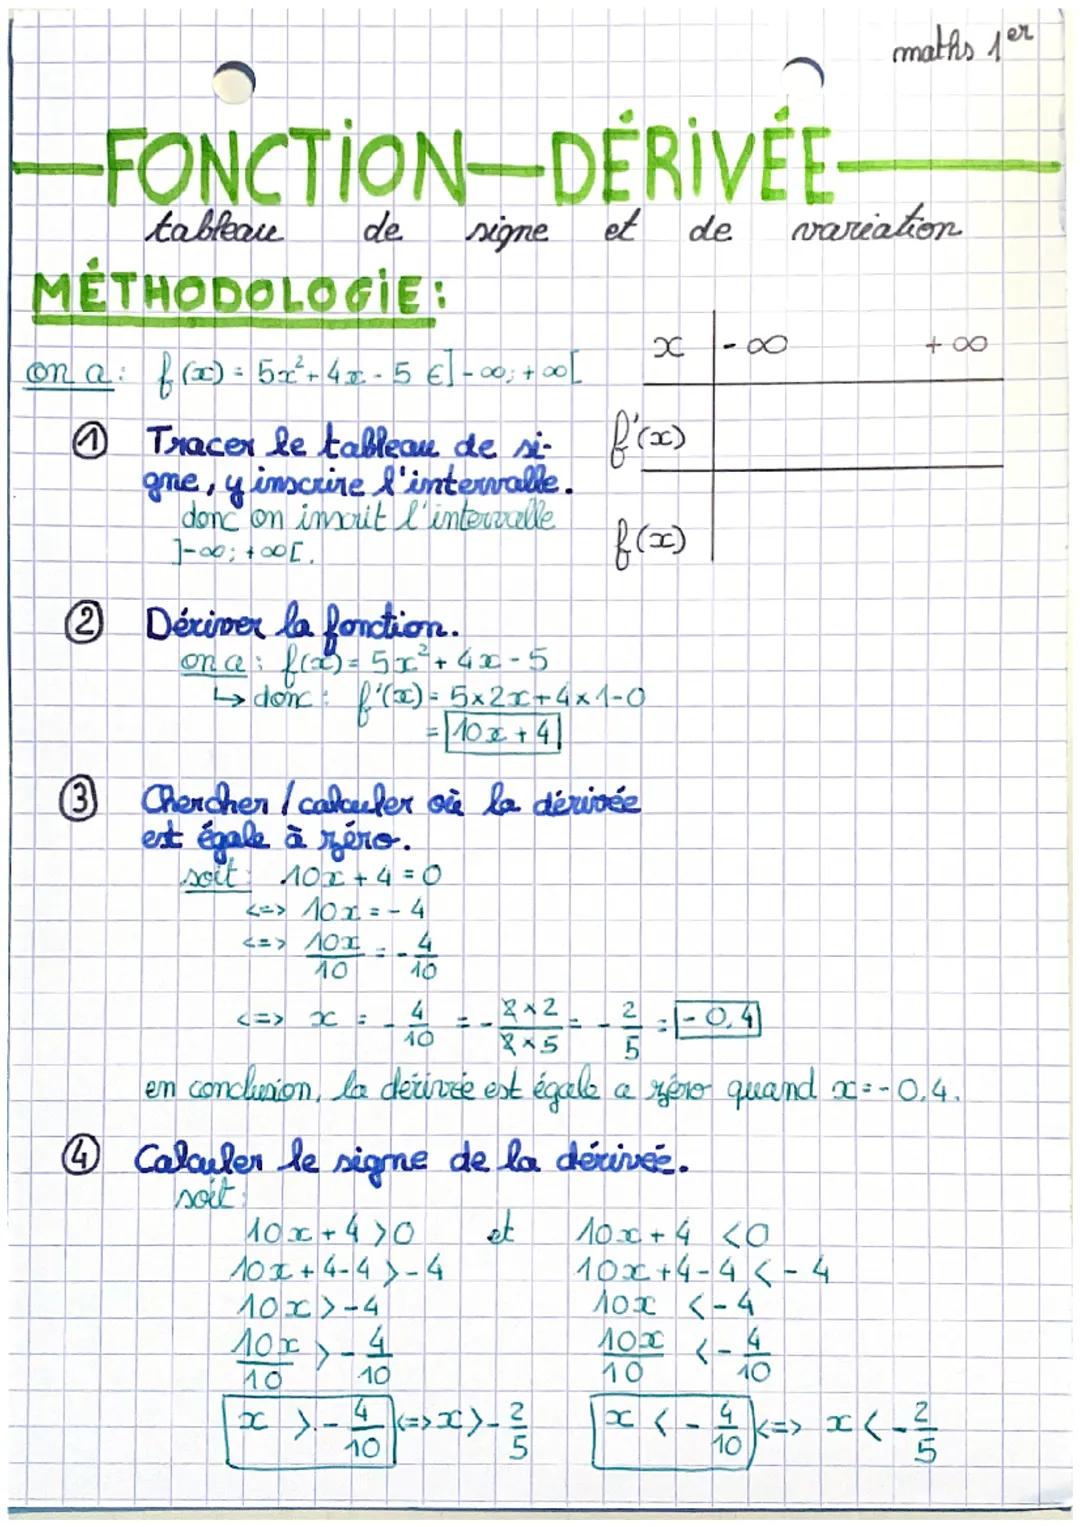 maths 1er
FONCTION DÉRIVÉE
tableau de signe et de variation
MÉTHODOLOGIE:
on a: f(x) = 5x²+4x-5 ∈]-∞;+∞[
x -∞ +∞
f'(x)
f(x)
① Tracer le tableau de si-
gne, y inscrire l'intervalle.
donc on inscrit l'intervalle
]-∞;+∞[.
② Dériver la fonction.
on a: f(x) = 5x²+4x-5
↳ donc: f'(x) = 5×2x+4×1-0
= 10x+4
③ Chercher / calculer où la dérivée
est égale à zéro.
soit: 10x+4=0
<=> 10x=-4
<=> 10x/10 = -4/10
<=> x = -4/10 = -2×2/2×5 = -2/5 = -0,4
en conclusion, la dérivée est égale a zéro quand x=-0.4.
④ Calculer le signe de la dérivée.
soit:
10x+4 >0 et 10x+4 <0
10x+4-4 >-4 10x+4-4 <-4
10x >-4 10x <-4
10x/10 > -4/10 10x/10 < -4/10
x > -4/10 <=> x > -2/5 x < -4/10 <=> x < -2/5